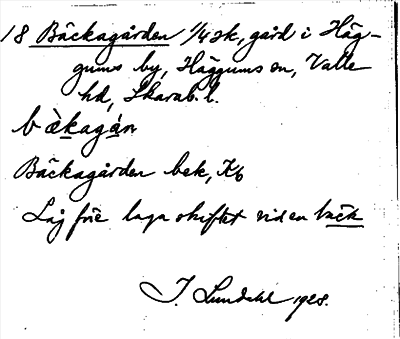 18 Bäckagården 1/4 sk, gård i Häg-
gums by, Häggums sn, Valle
hd, Skarab. l.
b ὰkagán
Bäckagården bek, Kb
Låg före laga skiftet vid en bäck
I. Lundahl 1928.